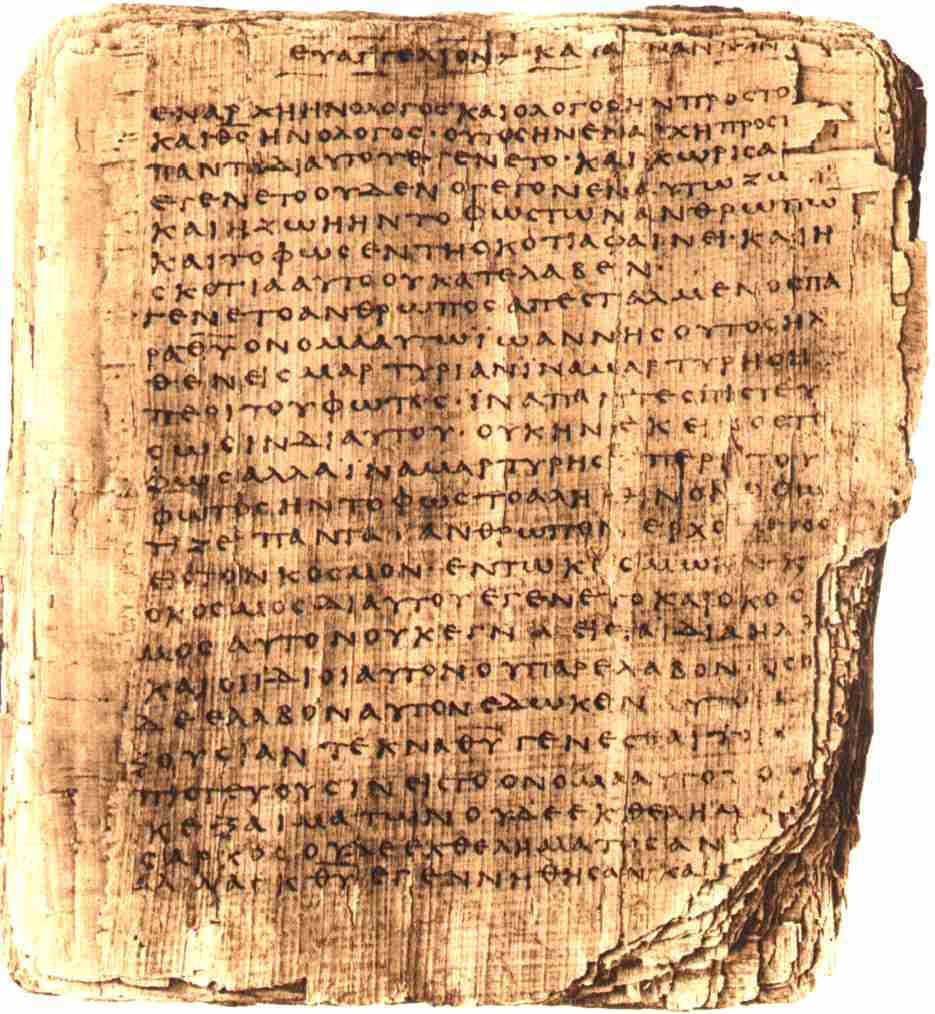 ΕΥΑΓΓΕΛΙΟΝ ΚΑΤΑ
ΕΝΑΡΧΗΗΝΟΛΟΓΟΣΚΑΙΟΛΟΓΟΣΗΝΠΡΟΣΤΟ
ΚΑΙΘΣΗΝΟΛΟΓΟΣ·ΟΥΤΟΣΗΝΕΝΑΡΧΗΠΡΟΣΤ
ΠΑΝΤΑΔΙΑΥΤΟΥΕΓΕΝΕΤΟ·ΚΑΙΧΩΡΙΣΑ
ΕΓΕΝΕΤΟΟΥΔΕΝΟΓΕΓΟΝΕΝΑΥΤΩΖΩ
ΚΑΙΗΖΩΗΗΝΤΟΦΩΣΤΩΝΑΝΘΡΩΠΩ
ΚΑΙΤΟΦΩΣΕΝΤΗΣΚΟΤΙΑΦΑΙΝΕΙ·ΚΑΙΗ
ΣΚΟΤΙΑΑΥΤΟΟΥΚΑΤΕΛΑΒΕΝ·
ΓΕΝΕΤΟΑΝΘΡΩΠΟΣΑΠΕΣΤΑΛΜΕΝΟΣΠΑ
ΡΑΘΥΟΝΟΜΑΑΥΤΩΪΩΑΝΝΗΣΟΥΤΟΣΗΛ
ΘΕΝΕΙΣΜΑΡΤΥΡΙΑΝΙΝΑΜΑΡΤΥΡΗΣΗ
ΠΕΡΙΤΟΥΦΩΤΟΣ·ΙΝΑΠΑΝΤΕΣΠΙΣΤΕΥ
ΣΩΣΙΝΔΙΑΥΤΟΥ·ΟΥΚΗΝΕΚΕΙΝΟΣΤΟ
ΦΩΣΑΛΛΑΙΝΑΜΑΡΤΥΡΗΣΗ ΠΕΡΙΤΟΥ
ΦΩΤΟΣΗΝΤΟΦΩΣΤΟΑΛΗΘΙΝΟΝΟΦΩ
ΤΙΖΕΙΠΑΝΤΑΑΝΘΡΩΠΟΝΕΡΧΟΜΕΝΟΝ
ΕΙΣΤΟΝΚΟΣΜΟΝ·ΕΝΤΩΚΟΣΜΩΗΝΚ
ΟΚΟΣΜΟΣΔΙΑΥΤΟΥΕΓΕΝΕΤΟΚΑΙΟΚΟΣ
ΜΟΣΑΥΤΟΝΟΥΚΕΓΝΩΕΙΣΤΑΙΔΙΑΗΛΘ
ΚΑΙΟΙΪΔΙΟΙΑΥΤΟΝΟΥΠΑΡΕΛΑΒΟΝ·ΟΣΟ
ΔΕΕΛΑΒΟΝΑΥΤΟΝΕΔΩΚΕΝΑΥΤΟΙ
ΞΟΥΣΙΑΝΤΕΚΝΑΘΥΓΕΝΕΣΘΑΙΤΟΙΣ
ΠΙΣΤΕΥΟΥΣΙΝΕΙΣΤΟΟΝΟΜΑΑΥΤΟΥΟ
ΚΕΞΑΙΜΑΤΩΝΟΥΔΕΕΚΘΕΛΗΜ
ΣΑΡΚΟΣΟΥΔΕΕΚΘΕΛΗΜΑΤΟΣΑΝ
ΑΛΛΑΕΚΘΥΕΓΕΝΝΗΘΗΣΑΝΚΑΙ